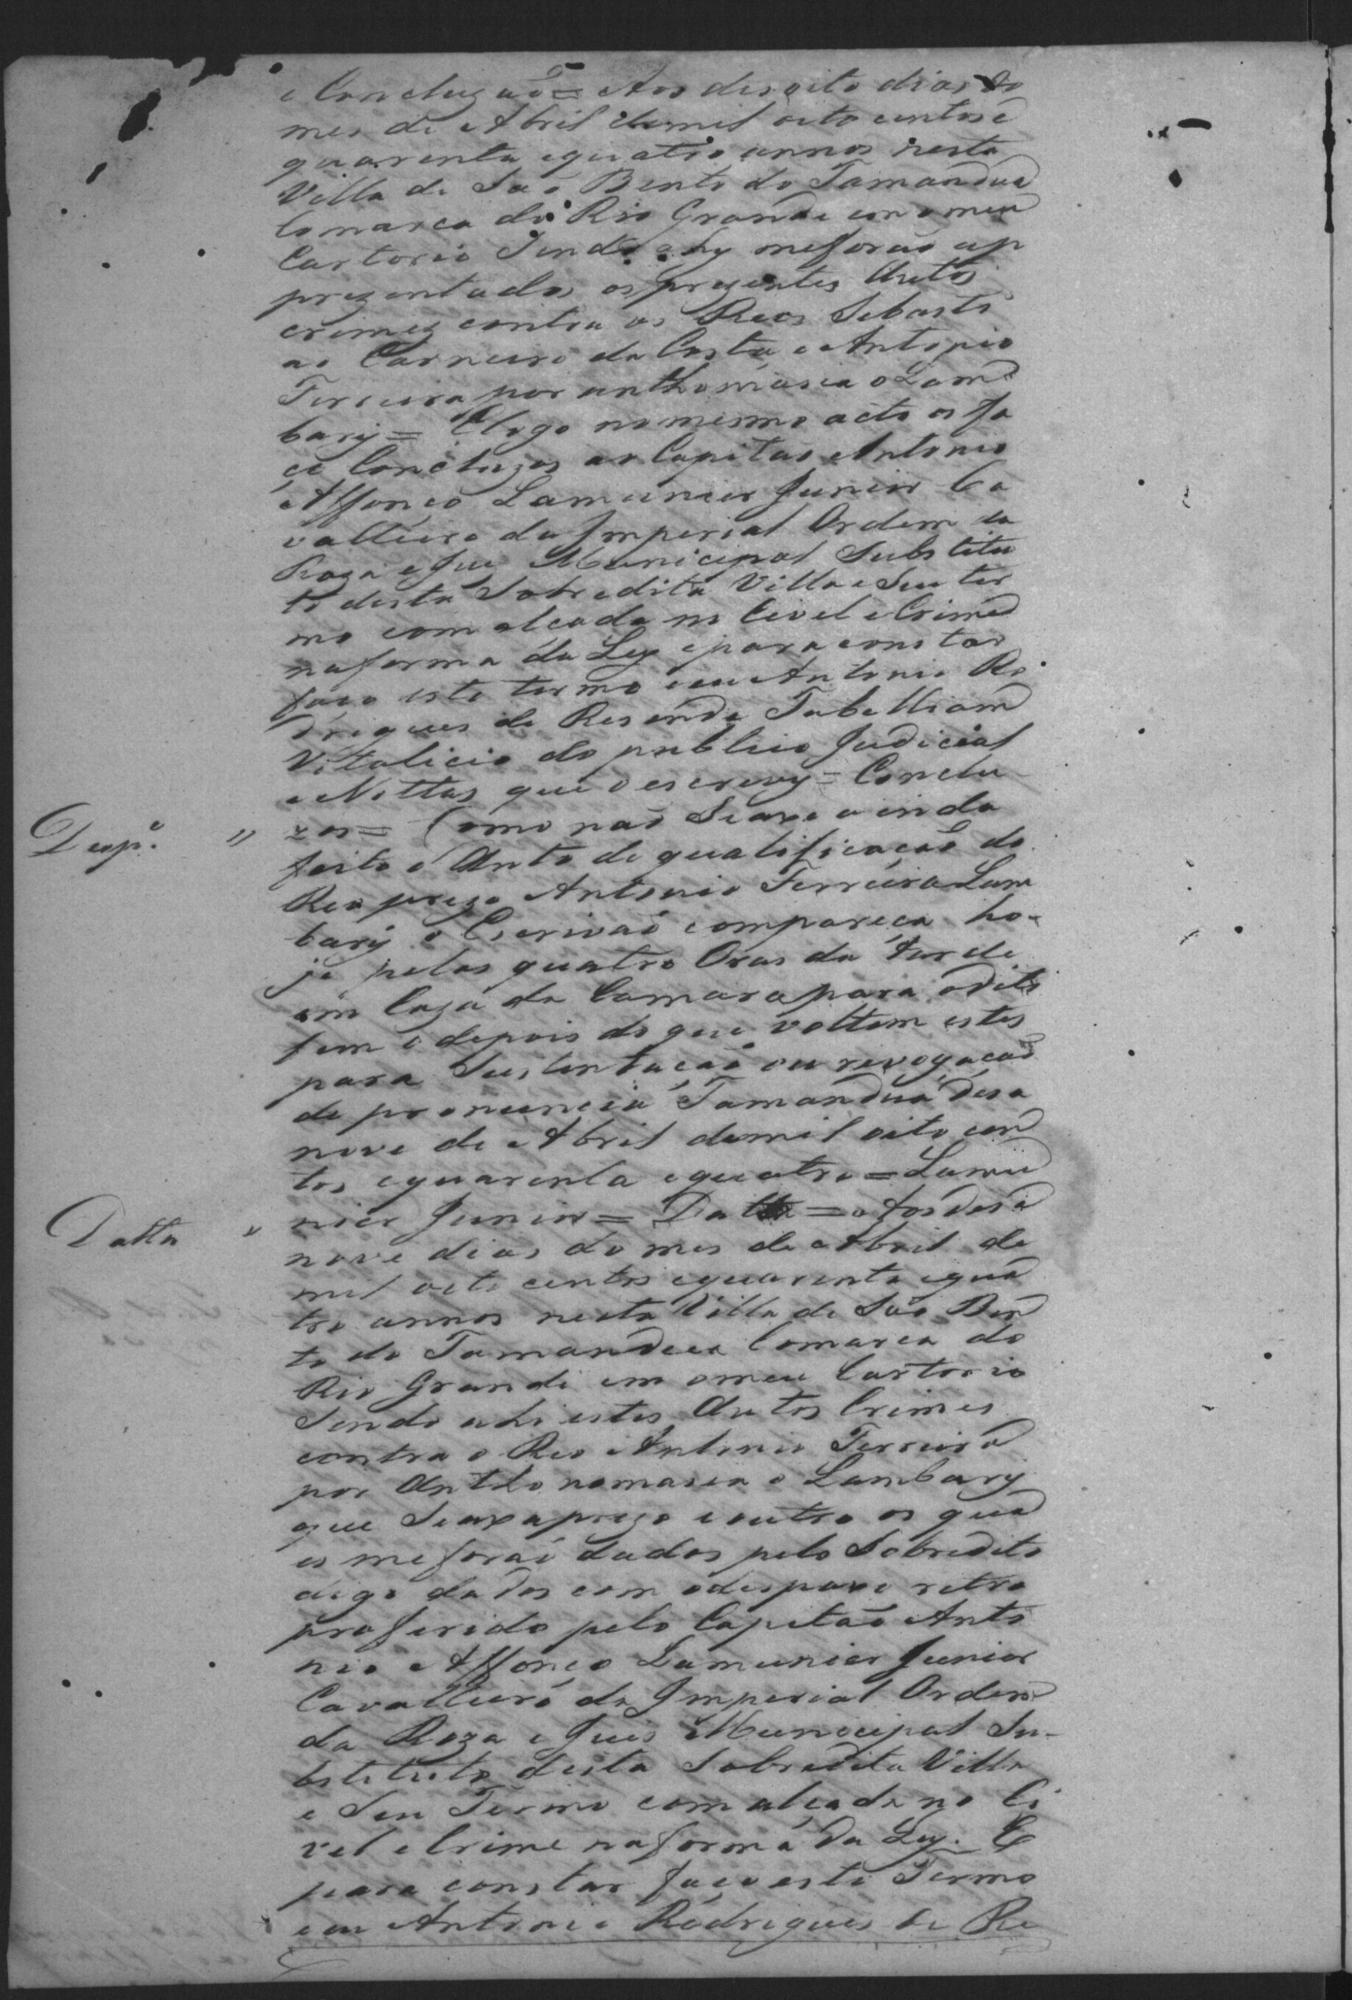 e Concluzaõ = Aos desoito dias do
mes de Abril demil oito centos e
quarenta equatro annos nesta
Villa de Saõ Bento do Tamanduá
Comarca do Rio Grande em o meu
Cartorio Sendo ahy meforaõ ap
prezentados os prezentes Autos
crimes contra os Reos Sebasti
aõ Carneiro da Costa e Antonio
Ferreira por anthomasia o Lam
bary = Elogo nomesmo acto os fa
ço Concluzos ao Capitaõ Antonio
Affonço Lamunier Junior Ca
valleiro da Imperial Ordem da
Roza e Juis Municipal Substitu
to desta Sobredita Villa e Seu ter
mo com alcada no Civel e Crime
naforma da Ley epara constar
faço este termo eeu Antonio Ro
drigues de Resende Tabelliam
Vitalicio do publico Judicial
e Nottas que o escrevy = Conclu
Desp.º " zos = Como naõ Seaxe ainda
feito o Auto de qualificacaõ do
Reo prezo Antonio Ferreira Lam
bary o Escrivaõ compareça ho-
je pelas quatro Oras da tarde
em Caza da Camara para odito
fim e depois do que voltem estes
para Sustentacaõ ou revogacaõ
de pronuncia Tamanduá desa
nove de Abril demil oito cen
tos equarenta equatro = Lamu
Datta " nier Junior = Datta = Aos desa
nove dias do mes de Abril de
mil oito centos equarenta equa
tro annos nesta Villa de Saõ Ben
to do Tamandua Comarca do
Rio Grande em omeu Cartorio
Sendo ahi estes Autos Crimes
contra o Reo Antonio Ferreira
por Anthonomasia o Lambary
que Seaxa prezo e outro os qua
es meforaõ dados pelo Sobredito
digo dados com odespaxo retro
proferido pelo Capitaõ Anto
nio Affonço Lamunier Junior
Cavalleiro da Imperial Ordem
da Roza e Juis Municipal Su-
bstituto desta Sobredita Villa
e Seu Termo com alcada no Ci
vel e Crime naforma da Ley. E
para constar faço este Termo
eeu Antonio Rodrigues de Re